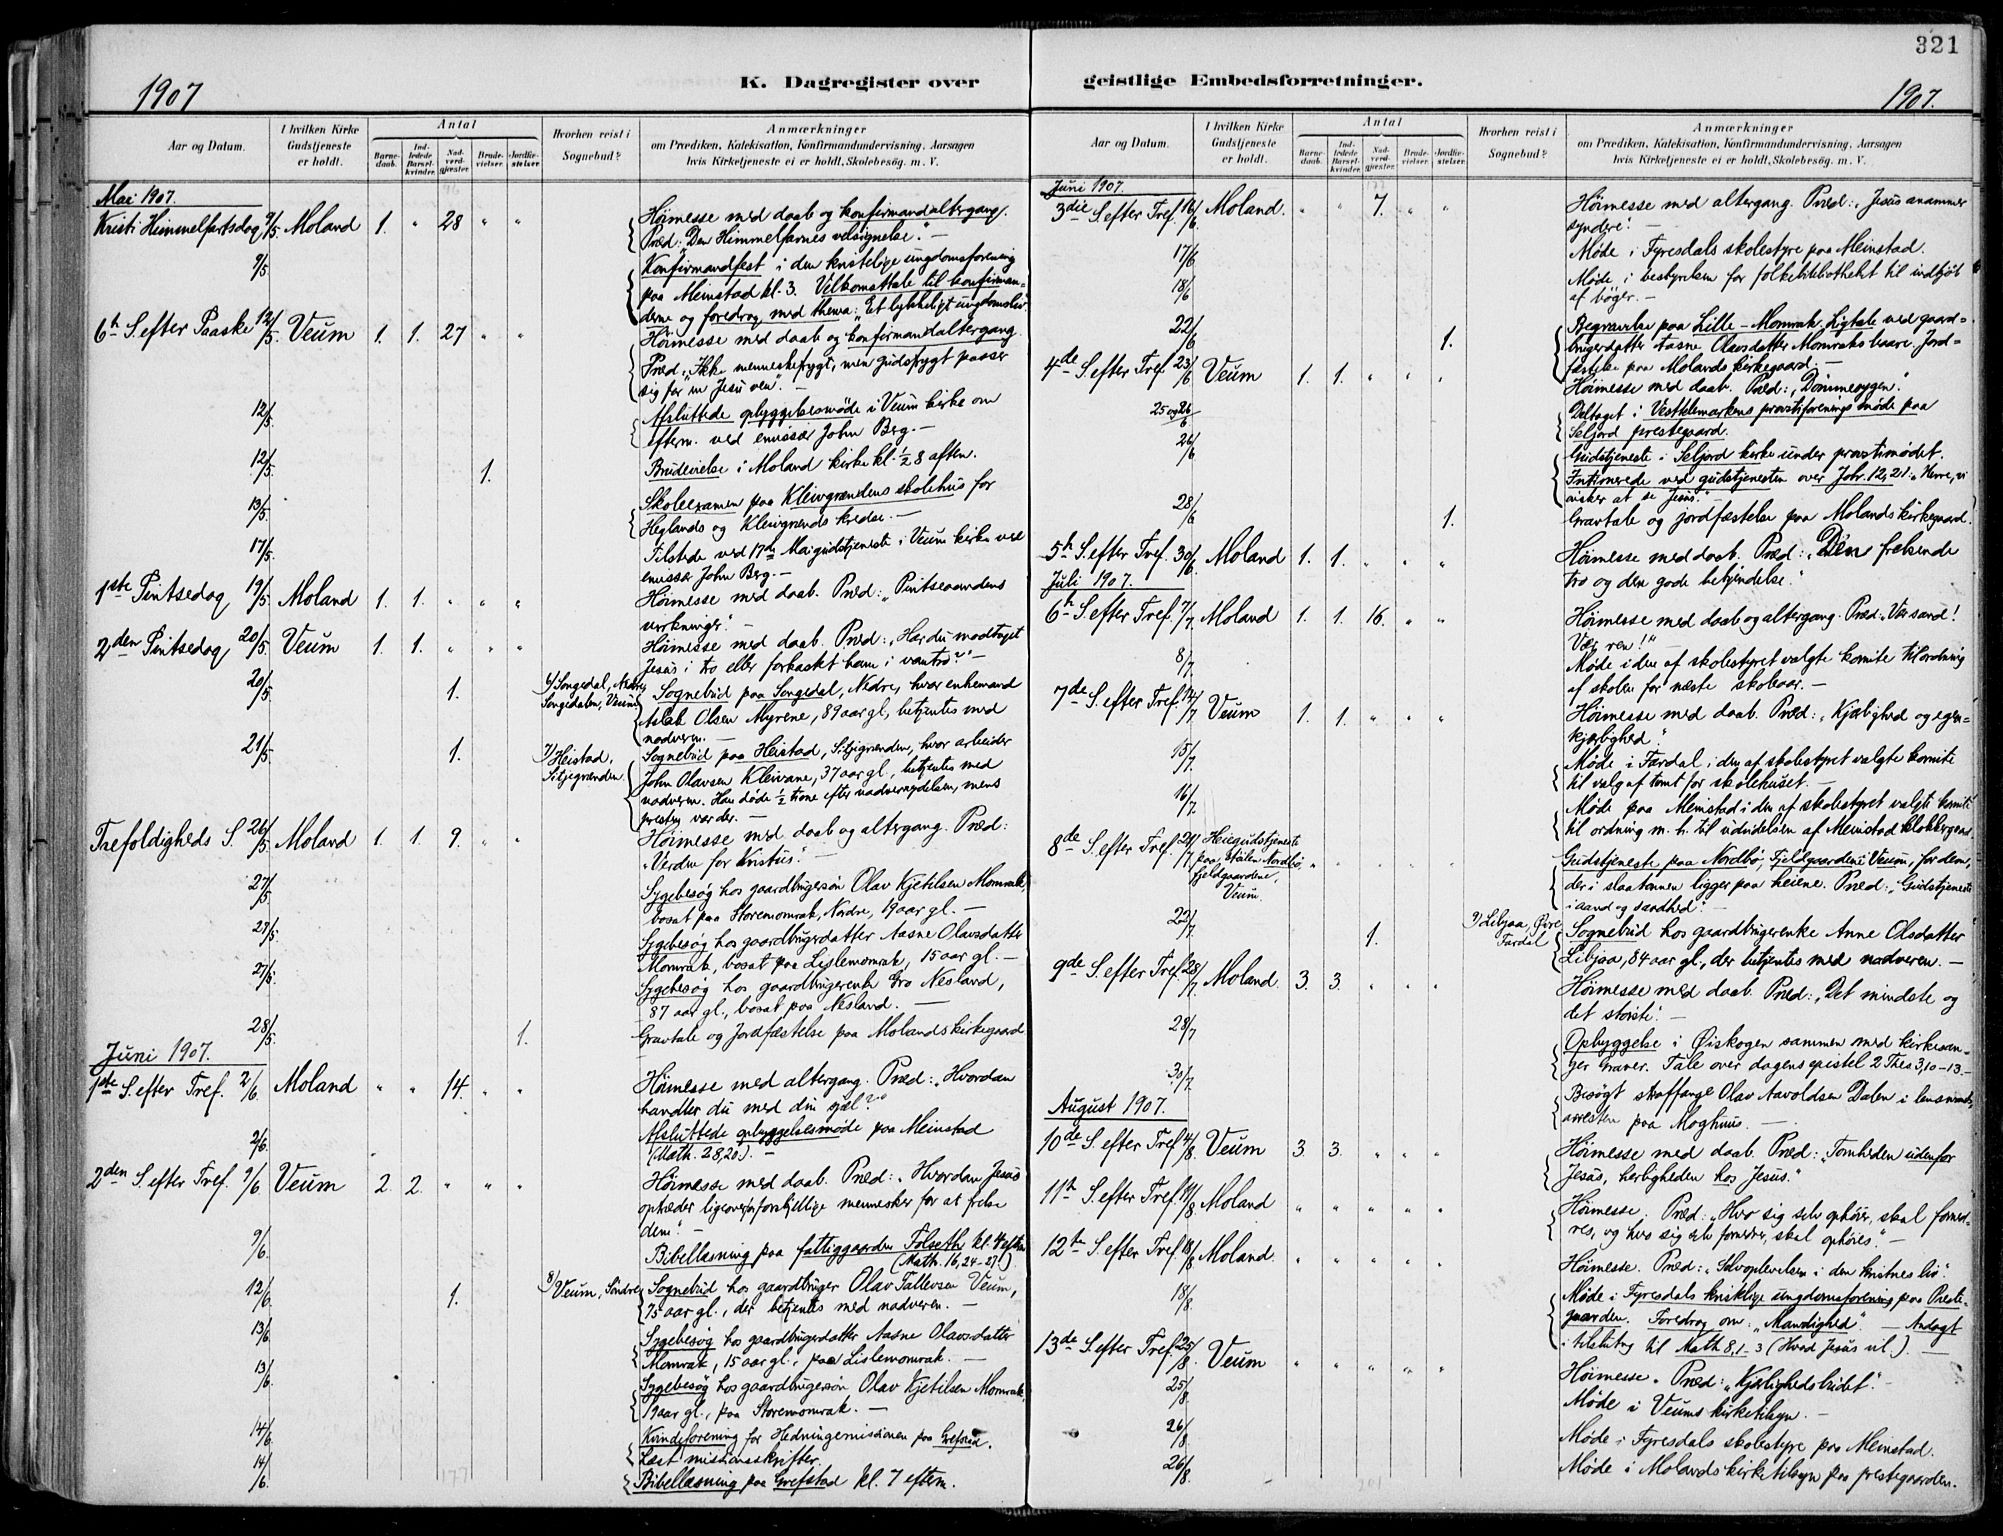 321
1907
K. Dagregister over
geistlige Embedsforretninger.
1907.
Aar og Datum.
I hvilken Kirke Gudstjeneste er holdt.
Antal
Barnedaab.
Indledede Barselkvinder.
Nadverdgjæster.
Brudevielser.
Jordfæstelser.
Hvorhen reist i Sognebud?
Anmærkninger
om Prædiken, Katekisation, Konfirmandundervisning, Aarsagen
hvis Kirketjeneste ei er holdt, Skolebesøg. m. V.
Mai 1907.
Kristi Himmelfartsdag 9/5. Moland 1. " 28 " " Høimesse med daab og konfirmandaltergang.
Præd: "Den Himmelfarnes velsignelse." —
9/5. Konfirmandfest i den kristelige ungdomsforening
paa Meinstad kl. 3. Velkomsttale til konfirman-
derne og foredrag med thema: "Et lykkeligt ungdomsliv".
6te S. efter Paaske 12/5. Veum 1. 1. 27 " " Høimesse med daab og konfirmandaltergang.
Præd: "Ikke menneskefrygt, men gudsfrygt passer
sig for en Jesu ven". —
12/5. Afsluttede opbyggelsesmøde i Veum kirke om
efterm. ved emissær John Berg. —
12/5. 1. Brudevielse i Moland kirke kl. ½ 8 aften.
13/5. Skoleexamen paa Kleivgrændens skolehus for
Heglands og Kleivgrænds kredse. —
17/5. Tilstede ved 17de Maigudstjeneste i Veum kirke ved
emissær John Berg. —
1ste Pintsedag 19/5. Moland 1. 1. " " " Høimesse med daab. Præd: "Pintseaandens
virkninger". —
2den Pintsedag 20/5. Veum 1. 1. " " " Høimesse med daab. Præd: "Har du modtaget
Jesus i tro eller forkastet ham i vantro?" —
20/5. 1. 6) Songedal, Nedre, Songedalen, Veum Sognebud paa Songedal, Nedre, hvor enkemand
Aslak Olsen Myrene, 89 aar gl., betjentes med
nadveren. —
21/5. 1. 7) Heistad, Siljegrænden Sognebud paa Heistad, Siljegrænden, hvor arbeider
John Olavsen Kleivane, 37 aar gl., betjentes med
nadveren. Han døde ½ time efter nadvernydelsen, mens
presten var der. —
Trefoldigheds S. 26/5. Moland 1. 1. 9. " " Høimesse med daab og altergang. Præd:
"Verden for Kristus". —
27/5. Sygebesøg hos gaardbrugersøn Olav Kjetilsen Momrak,
bosat paa Storemomrak, Nordre, 19 aar gl. —
27/5. Sygebesøg hos gaardbrugerdatter Aasne Olavsdatter
Momrak, bosat paa Lislemomrak, 15 aar gl. —
27/5. Sygebesøg hos gaardbrugerenke Gro Nesland,
87 aar gl., bosat paa Nesland. —
28/5. 1. Gravtale og Jordfæstelse paa Molands kirkegaard
Juni 1907.
1ste S. efter Tref. 2/6. Moland " " 14. " " Høimesse med altergang. Præd: "Hvordan
handler du med din sjæl?"
2/6. Afsluttede opbyggelsesmøde paa Meinstad
(Math. 28,20). —
2den S. efter Tref. 9/6 Veum 2. 2. " " " Høimesse med daab. Præd: "Hvordan Jesus
optræder ligeoverfor forskjellige mennesker for at frelse
dem". —
9/6. Bibellæsning paa fattiggaarden Folseth kl. 4 eftm.
(Math. 16,24-27.)
12/6. 1. 8) Veum, Søndre Sognebud hos gaardbruger Olav Tallevsen Veum,
75 aar gl., der betjentes med nadveren. —
13/6. Sygebesøg hos gaardbrugerdatter Aasne Olavsdatter
Momrak, 15 aar gl., paa Lislemomrak. —
13/6. Sygebesøg hos gaardbrugersøn Olav Kjetilsen Momrak,
19 aar gl., paa Storemomrak. —
14/6. Kvindeforening for Hedningemissionen paa Grefstad.
Læst missionsskrifter.
14/6. Bibellæsning paa Grefstad kl. 7 efterm.
Aar og Datum.
I hvilken Kirke Gudstjeneste er holdt.
Antal
Barnedaab.
Indledede Barselkvinder.
Nadverdgjæster.
Brudevielser.
Jordfæstelser.
Hvorhen reist i Sognebud?
Anmærkninger
om Prædiken, Katekisation, Konfirmandundervisning, Aarsagen
hvis Kirketjeneste ei er holdt, Skolebesøg. m. V.
Juni 1907.
3die S. efter Tref. 16/6. Moland. " " 7. " " Høimesse med altergang. Præd: "Jesus anammer
syndere". —
17/6 Møde i Fyresdals skolestyre paa Meinstad.
18/6. Møde i bestyrelsen for folkebibliotheket til indkjøb
af bøger. —
22/6. 1. Begravelse paa Lille-Momrak. Ligtale ved gaard-
brugerdatter Aasne Olavsdatter Momraks baare. Jord-
fæstelse paa Molands kirkegaard. —
4de S. efter Tref. 23/6 Veum 1. 1. " " " Høimesse med daab. Præd: "Dømmesygen".
25 og 26/6 Deltaget i Vesttelemarkens provstiforenings møde paa
Seljord prestegaard.
26/6. Gudstjeneste i Seljord kirke under provstimødet.
Intimerede ved gudstjenesten over Joh. 12,21: "Herre, vi
ønsker at se Jesus". —
28/6 1. Gravtale og jordfæstelse paa Molands kirkegaard.
5te S. efter Tref. 30/6. Moland 1. 1. " " " Høimesse med daab. Præd: "Den frelsende
tro og den gode bekjendelse."
Juli 1907.
6te S. efter Tref. 7/7. Moland 1. 1. 16. " " Høimesse med daab og altergang. Præd: "Vær sand!
Vær ren!" —
8/7. Møde i den af skolestyret valgte komite til ordning
af skolen for næste skoleaar. —
7de S. efter Tref. 14/7 Veum 1. 1. " " " Høimesse med daab. Præd: "Kjærlighed og egen-
kjærlighed."
15/7. Møde i Fardal i den af skolestyret valgte komite
til valg af tomt for skolehuset. —
16/7. Møde paa Meinstad i den af skolestyret valgte komite
til ordning m. h. til udvidelsen af Meinstad klokkergaard
8de S. efter Tref. 21/7. Heiegudstjeneste paa stølen Nordbø, Fjeldgaardene, Veum. " " " " " Gudstjeneste paa Nordbø, Fjeldgaarden i Veum, for dem,
der i slaatonnen ligger paa heiene. Præd: "Gudstjeneste
i aand og sandhed". —
22/7. 1. 9) Libjaa, Øvre Fardal Sognebud hos gaardbrugerenke Anne Olsdatter
Libjaa, 84 aar gl., der betjentes med nadveren. —
9de S. efter Tref. 28/7. Moland. 3. 3. " " " Høimesse med daab. Præd: "Det mindste og
det største". —
28/7 Opbyggelse i Øiskogen sammen med kirkesan-
ger Graver. Tale over dagens epistel 2 Thes 3,10-13. —
30/7. Besøgt straffange Olav Aavoldsen Dalen i lensmands-
arresten paa Moghuus. —
August 1907.
10de S. efter Tref. 4/8. Veum 3. 3. " " " Høimesse med daab. Præd: "Tomheden udenfor
Jesus, herligheden hos Jesus."
11te S. efter Tref. 11/8. Moland " " " " " Høimesse. Præd: "Hvo sig selv ophøier, skal fornæd-
res, og hvo sig selv fornedrer, skal ophøies". —
12te S. efter Tref. 18/8 Moland. " " " " " Høimesse. Præd: "Selvoplevelsen i den kristnes liv".
18/8. Møde i Fyresdals kristelige ungdomsforening paa Preste-
gaarden. Foredrag om: "Mandighed". — Andagt
i tilslutning til Math 8,1-3 (Hvad Jesus vil.). —
13de S. efter Tref. 25/8. Veum " " " " " Høimesse. Præd: "Kjærlighedsbudet". —
25/8. Møde i Veums kirketilsyn. —
26/8. Møde i Fyresdals skolestyre paa Meinstad.
26/8. Møde i Molands kirketilsyn paa prestegaarden.